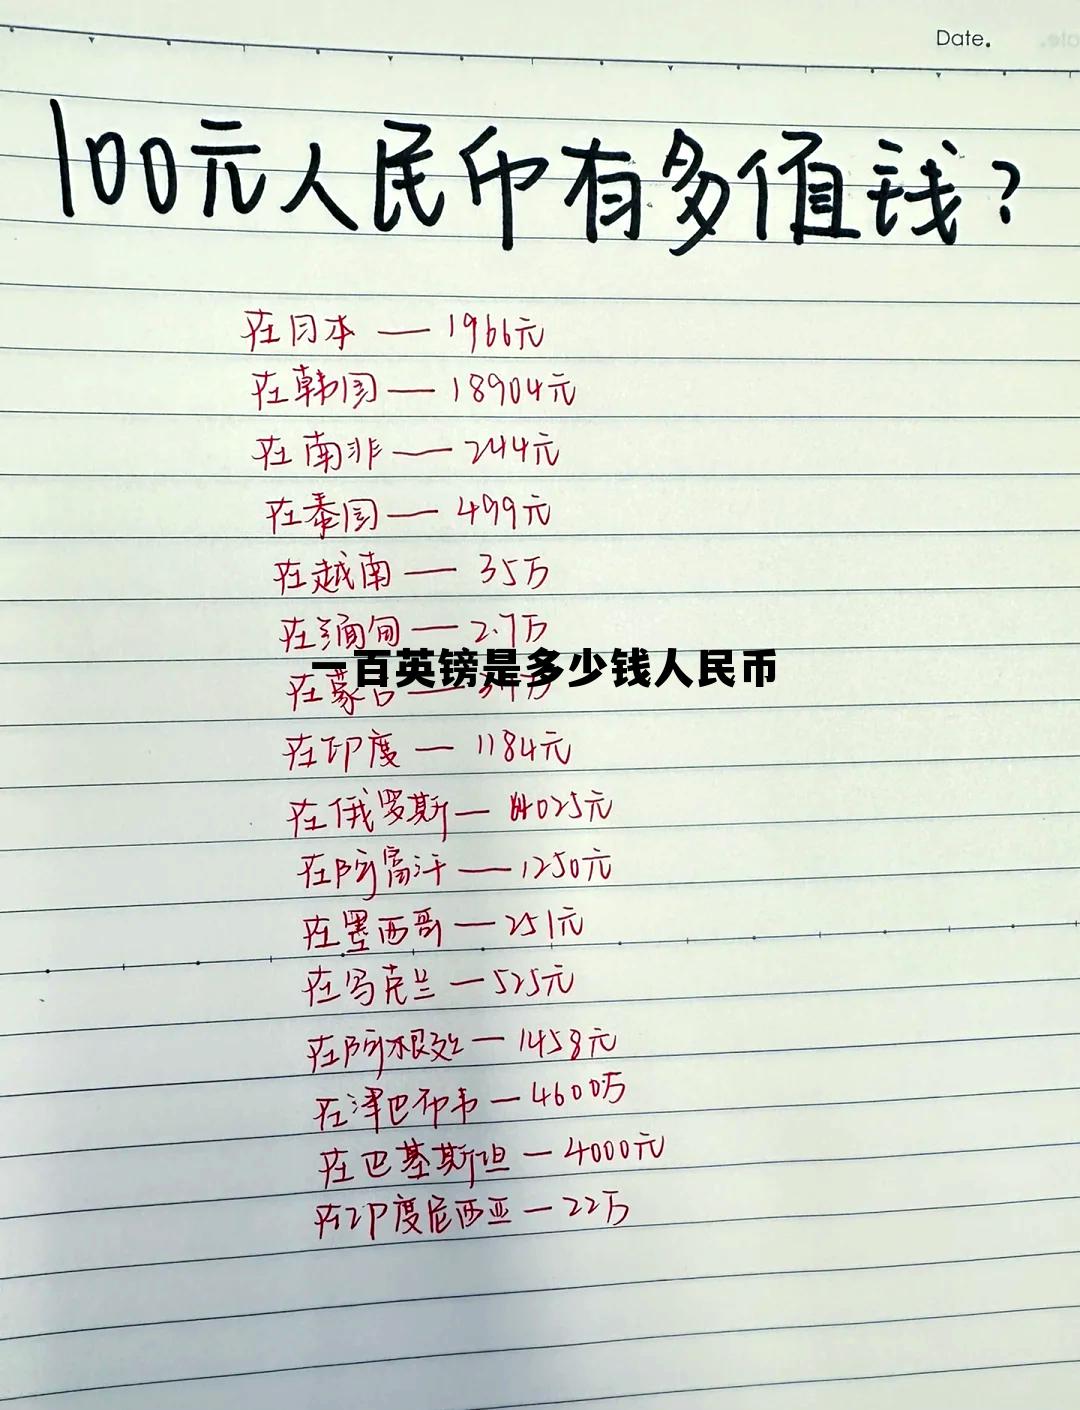 Date.
100元人民币有多值钱?
在日本 — 1966元
在韩国 — 18904元
在南非 — 244元
在泰国 — 499元
在越南 — 35万
在缅甸 — 2.7万
一百英镑是多少钱人民币
在蒙古 —
在印度 — 1184元
在俄罗斯 — 025元
在阿富汗 — 1250元
在墨西哥 — 251元
在乌克兰 — 525元
在阿根廷 — 1458元
在津巴布韦 — 4600万
在巴基斯坦 — 4000元
在印度尼西亚 — 22万